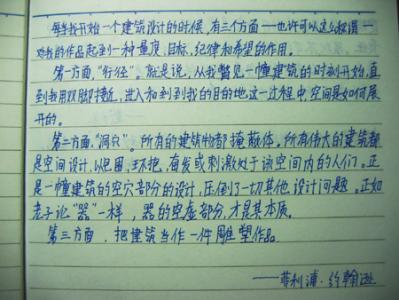 每当我开始一个建筑设计的时候,有三个方面——也许可以这么称谓——
对我的作品起到一种量度、目标、纪律和希望的作用。
第一方面,“行径”。就是说,从我瞥见一幢建筑的时刻开始,直
到我用双脚接近,进入和到到我的目的地这一过程中,空间是如何展
开的。
第二方面,“洞穴”。所有的建筑物都掩蔽体。所有伟大的建筑都
是空间设计,以包围、环抱,奋发或刺激处于该空间内的人们。正
是一幢建筑的空穴部分的设计,压倒了一切其他设计问题。正如
老子论“器”一样,器的空虚部分,才是其本质。
第三方面,把建筑当作一件雕塑作品。
——菲利浦·约翰逊